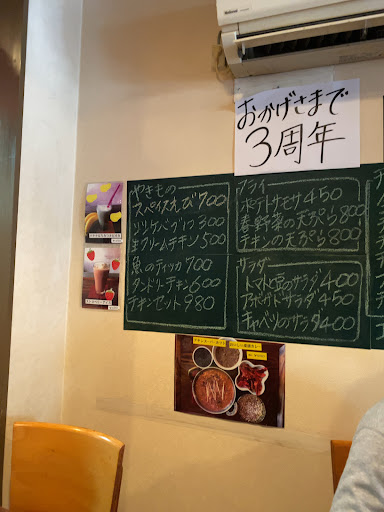 おかげさまで
3周年
やきもの
スペイスえび700
シリケバブ1つ300
生クリームチキン500
魚のティッカ700
タンドリーチキン600
チキンセット980
フライ
ポテトサモサ450
春野菜の天ぷら800
チキンの天ぷら800
サラダ
トマト豆のサラダ400
アボガドサラダ450
キャベツのサラダ400